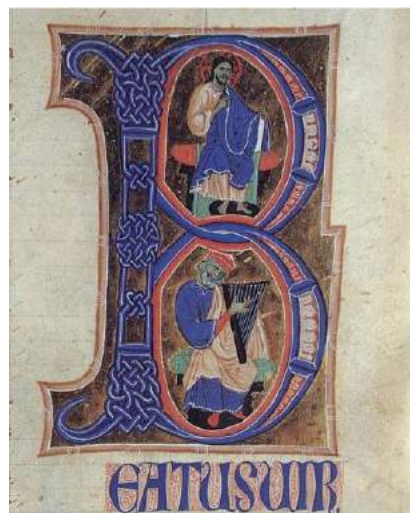 B
EATUSUIR